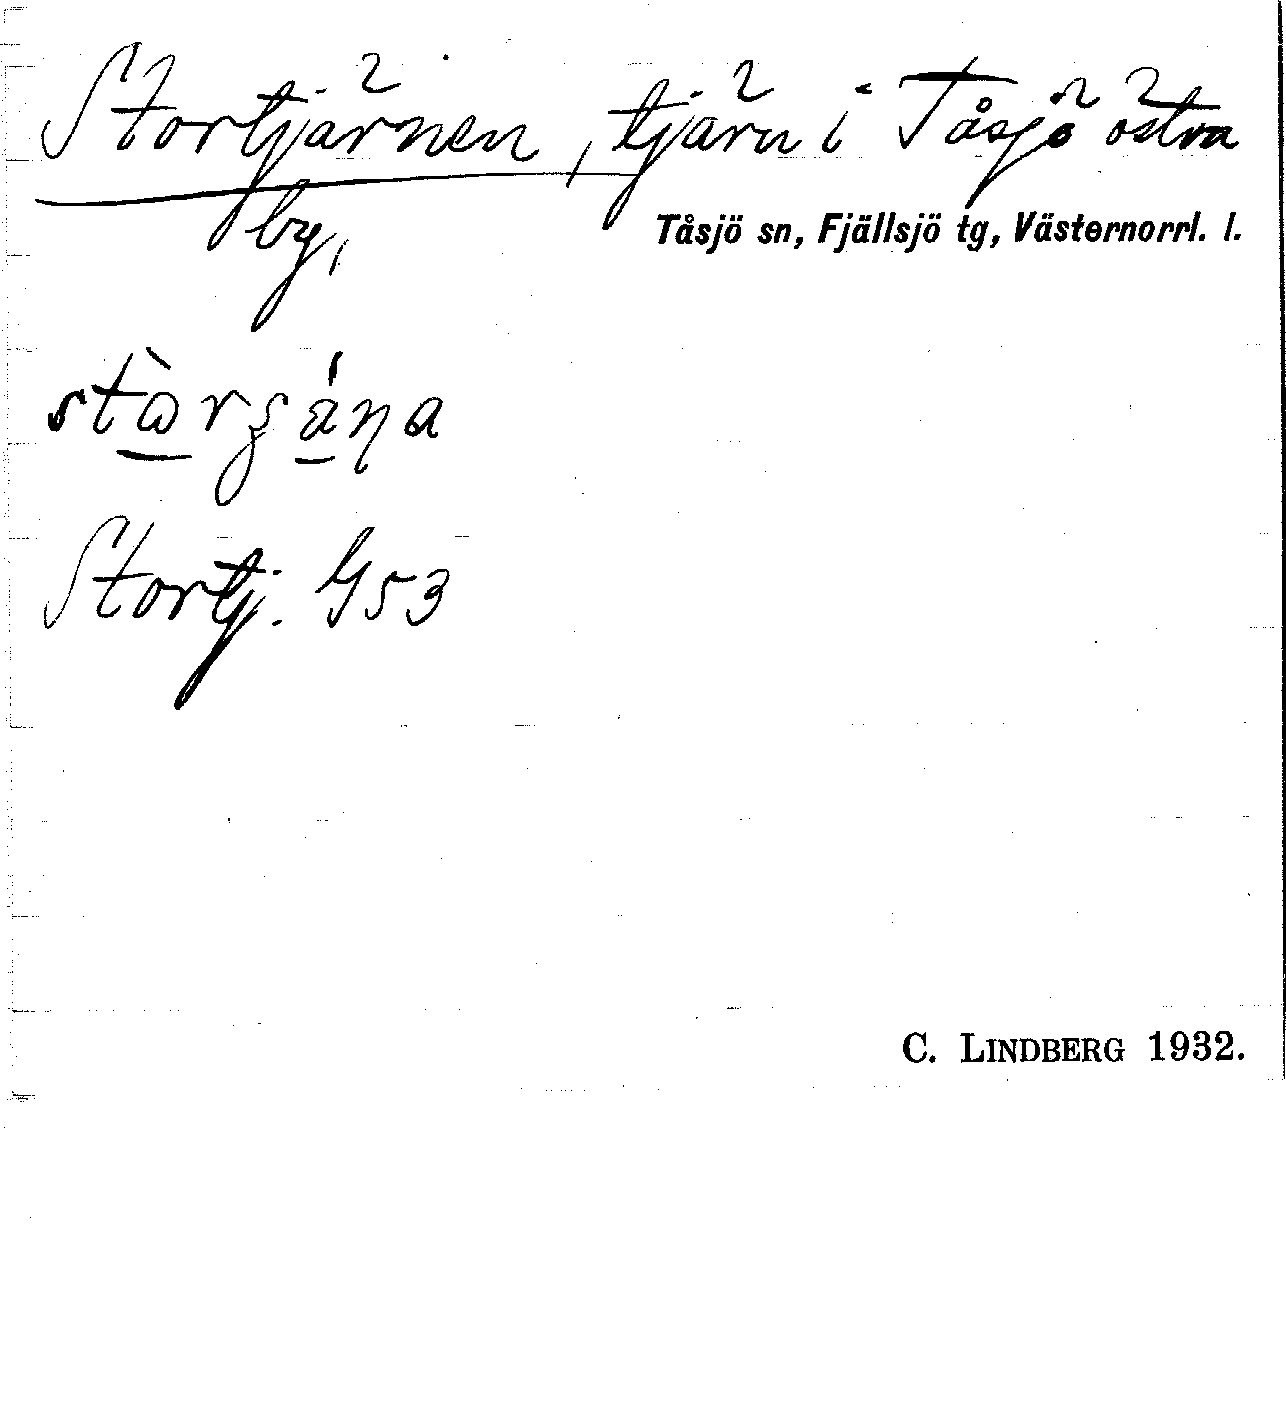 Stortjärnen, tjärn i Tåsjö östra
by,
Tåsjö sn, Fjällsjö tg, Västernorrl. l.
Stortj. G53
C. LINDBERG 1932.